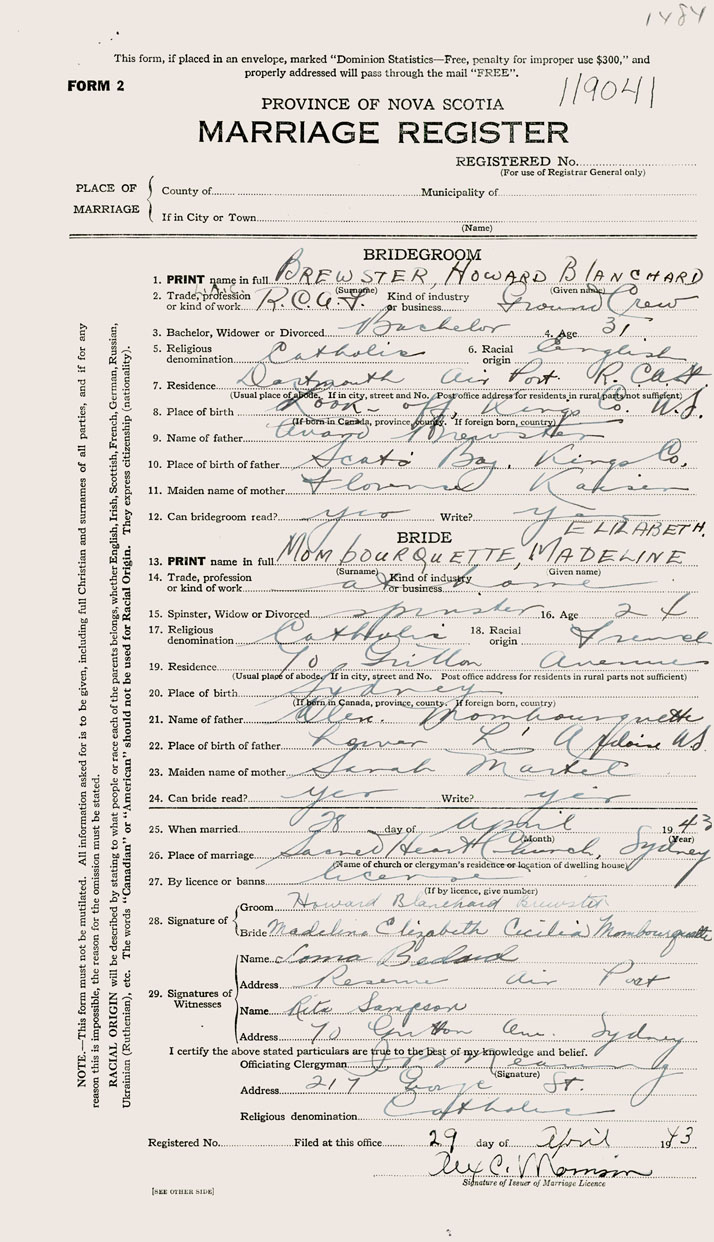 1484
This form, if placed in an envelope, marked "Dominion Statistics—Free, penalty for improper use $300," and
properly addressed will pass through the mail "FREE".
FORM 2
119041
PROVINCE OF NOVA SCOTIA
MARRIAGE REGISTER
REGISTERED No.
(For use of Registrar General only)
PLACE OF MARRIAGE
County of Municipality of
If in City or Town
(Name)
BRIDEGROOM
1. PRINT name in full BREWSTER, HOWARD BLANCHARD
(Surname) (Given name)
2. Trade, profession or kind of work R.C.A.F. Kind of industry or business Ground Crew
3. Bachelor, Widower or Divorced Bachelor 4. Age 31
5. Religious denomination Catholic 6. Racial origin English
7. Residence Dartmouth Air Port R.C.A.F.
(Usual place of abode. If in city, street and No. Post office address for residents in rural parts not sufficient)
8. Place of birth Look-off, Kings Co. N.S.
(If born in Canada, province, county. If foreign born, country)
9. Name of father Avard Brewster
10. Place of father Scots Bay, Kings Co.
11. Maiden name of mother Florence
12. Can bridegroom read? yes Write? yes
BRIDE
ELIZABETH.
13. PRINT name in full MOMBOURQUETTE, MADELINE
(Surname) (Given name)
14. Trade, profession or kind of work at home Kind of industry or business
15. Spinster, Widow or Divorced spinster 16. Age 24
17. Religious denomination Catholic 18. Racial origin French
19. Residence 70 Avenue
(Usual place of abode. If in city, street and No. Post office address for residents in rural parts not sufficient)
20. Place of birth Sydney
(If born in Canada, province, county. If foreign born, country)
21. Name of father Alex. Mombourquette
22. Place of birth of father Lower L'Ardoise N.S.
23. Maiden name of mother Sarah Martel
24. Can bride read? yes Write? yes
25. When married 28 day of April 1943
(Month) (Year)
26. Place of marriage Sacred Heart Church, Sydney
(Name of church or clergyman's residence or location of dwelling house)
27. By licence or banns license
(If by licence, give number)
28. Signature of
Groom Howard Blanchard Brewster
Bride Madeline Elizabeth Cecilia Mombourquette
29. Signatures of Witnesses
Name Bedard
Address Reserve Air Port
Name Rita Sampson
Address 70 Ave. Sydney
I certify the above stated particulars are true to the best of my knowledge and belief.
Officiating Clergyman
(Signature)
Address 217 George St.
Religious denomination Catholic
Registered No. Filed at this office 29 day of April 1943
Alex C. Morrison
Signature of Issuer of Marriage Licence
[SEE OTHER SIDE]
NOTE.—This form must not be mutilated. All information asked for is to be given, including full Christian and surnames of all parties, and if for any
reason this is impossible, the reason for the omission must be stated.
RACIAL ORIGIN will be described by stating to what people or race each of the parents belongs, whether English, Irish, Scottish, French, German, Russian,
Ukrainian (Ruthenian), etc. The words "Canadian" or "American" should not be used for Racial Origin. They express citizenship (nationality).